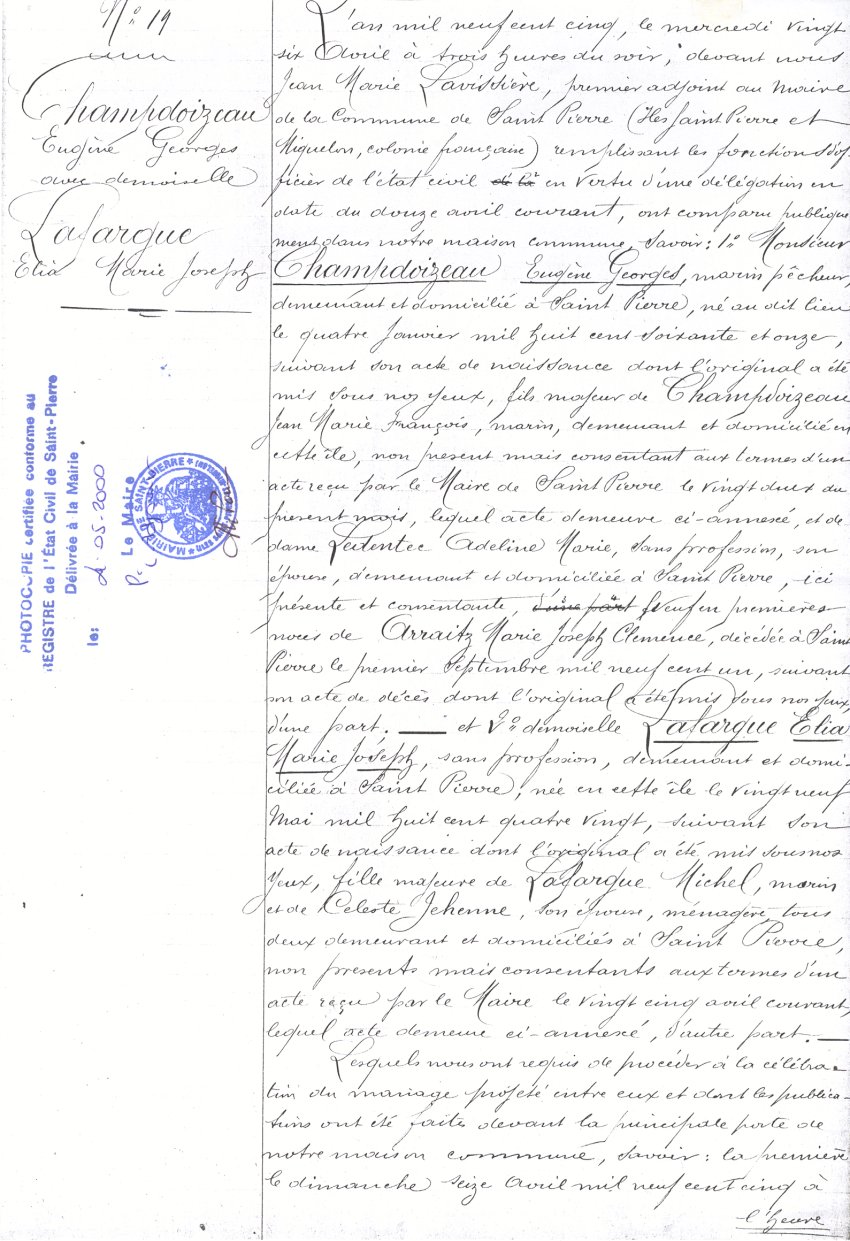 N° 19
Champdoizeau
Eugène Georges
avec demoiselle
Lafargue
Elia Marie Joseph
PHOTOCOPIE certifiée conforme au
REGISTRE de l'État Civil de Saint-Pierre
Délivrée à la Mairie
le: -05-2000
Le Maire
MAIRIE DE SAINT-PIERRE
L'an mil neuf cent cinq, le mercredi vingt
six Avril à trois heures du soir, devant nous
Jean Marie Lavissière, premier adjoint au Maire
de la Commune de Saint Pierre (Iles Saint Pierre et
Miquelon, colonie française) remplissant les fonctions d'of-
ficier de l'état civil de la en vertu d'une délégation en
date du douze avril courant, ont comparu publique
ment dans notre maison commune, savoir: 1° Monsieur
Champdoizeau Eugène Georges, marin pêcheur,
demeurant et domicilié à Saint Pierre, né au dit lieu
le quatre Janvier mil huit cent soixante et onze,
suivant son acte de naissance dont l'original a été
mis sous nos yeux, fils majeur de Champdoizeau
Jean Marie François, marin, demeurant et domicilié en
cette île, non présent mais consentant aux termes d'un
acte reçu par le Maire de Saint Pierre le vingt deux du
présent mois, lequel acte demeure ci-annexé, et de
dame Ledentec Adeline Marie, sans profession, son
épouse, demeurant et domiciliée à Saint Pierre, ici
présente et consentante, d'une part Veuf en premières
noces de Arraitz Marie Joseph Clemence, décédée à Saint
Pierre le premier Septembre mil neuf cent un, suivant
son acte de décès dont l'original a été mis sous nos yeux,
d'une part. — et 2° demoiselle Lafargue Elia
Marie Joseph, sans profession, demeurant et domi-
ciliée à Saint Pierre, née en cette île le vingt neuf
Mai mil huit cent quatre vingt, suivant son
acte de naissance dont l'original a été mis sous nos
yeux, fille majeure de Lafargue Michel, marin
et de Celeste Jehenne, son épouse, ménagère, tous
deux demeurant et domiciliés à Saint Pierre,
non présents mais consentants aux termes d'un
acte reçu par le Maire le vingt cinq avril courant,
lequel acte demeure ci-annexé, d'autre part. —
Lesquels nous ont requis de procéder à la célébra-
tion du mariage projeté entre eux et dont les publica-
tions ont été faites devant la principale porte de
notre maison commune, savoir: la première
le dimanche seize Avril mil neuf cent cinq à
l'heure